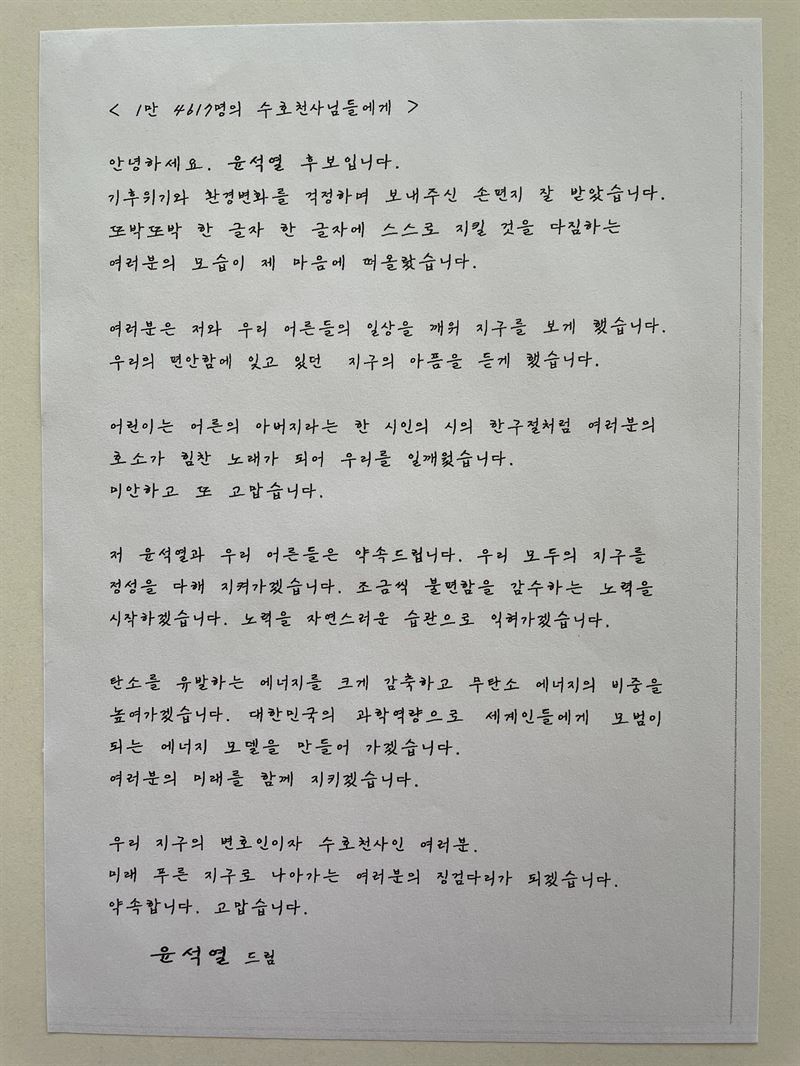 < 1만 4617명의 수호천사님들에게 >
안녕하세요. 윤석열 후보입니다.
기후위기와 환경변화를 걱정하며 보내주신 손편지 잘 받았습니다.
또박또박 한 글자 한 글자에 스스로 지킬 것을 다짐하는
여러분의 모습이 제 마음에 떠올랐습니다.
여러분은 저와 우리 어른들의 일상을 깨워 지구를 보게 했습니다.
우리의 편안함에 잊고 있던 지구의 아픔을 듣게 했습니다.
어린이는 어른의 아버지라는 한 시인의 시의 한구절처럼 여러분의
호소가 힘찬 노래가 되어 우리를 일깨웠습니다.
미안하고 또 고맙습니다.
저 윤석열과 우리 어른들은 약속드립니다. 우리 모두의 지구를
정성을 다해 지켜가겠습니다. 조금씩 불편함을 감수하는 노력을
시작하겠습니다. 노력을 자연스러운 습관으로 익혀가겠습니다.
탄소를 유발하는 에너지를 크게 감축하고 무탄소 에너지의 비중을
높여가겠습니다. 대한민국의 과학역량으로 세계인들에게 모범이
되는 에너지 모델을 만들어 가겠습니다.
여러분의 미래를 함께 지키겠습니다.
우리 지구의 변호인이자 수호천사인 여러분.
미래 푸른 지구로 나아가는 여러분의 징검다리가 되겠습니다.
약속합니다. 고맙습니다.
윤석열 드림